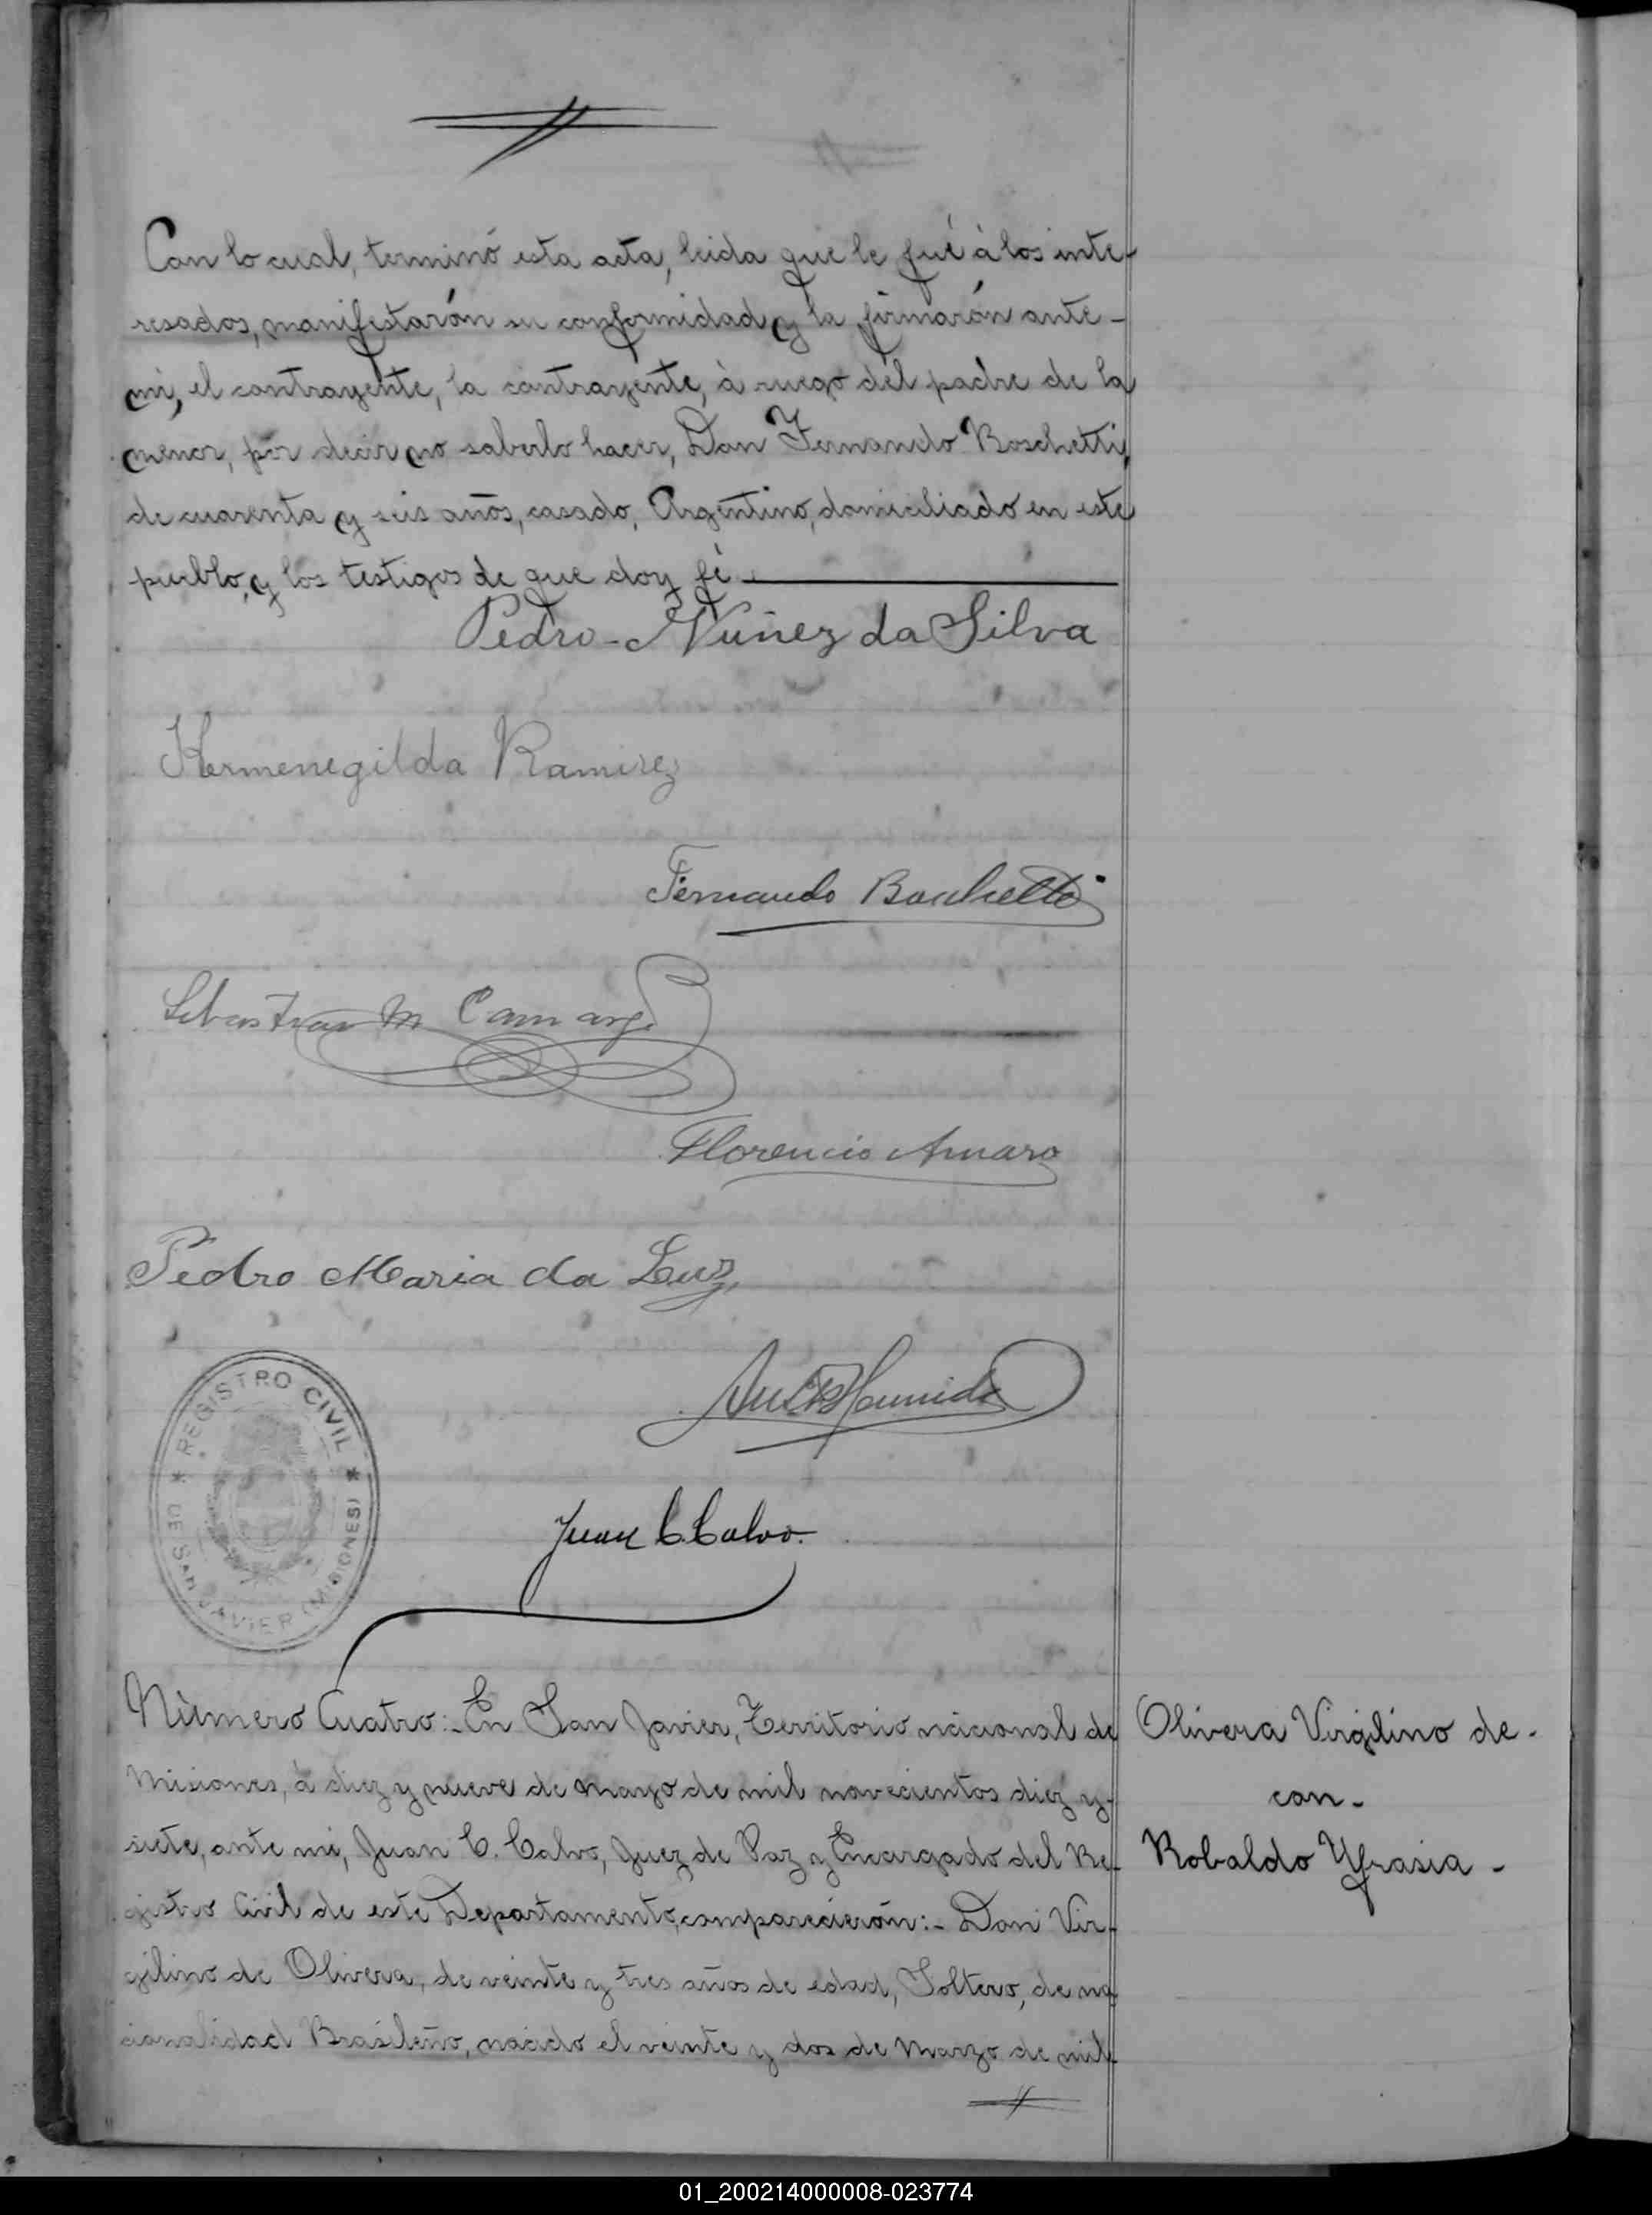 Con lo cual, terminó esta acta, leida que le fué à los inte-
resados, manifestarón su conformidad y la firmarón ante-
mi, el contrayente, la contrayente, à ruego del padre de la
menor, por decir no saberlo hacer, Don Fernando Boschetti,
de cuarenta y seis años, casado, Argentino, domiciliado en este
pueblo, y los testigos de que doy fé
Pedro Nuñez da Silva
Hermenegilda Ramirez
Fernando Boschetti
Sebastian M Camargo
Florencio Amaro
Pedro Maria da Luz
REGISTRO CIVIL
DE SAN JAVIER (MISIONES)
Juan C. Calvo.
Nùmero Cuatro:- En San Javier, Territorio nacional de
Misiones, à diez y nueve de Mayo de mil novecientos diez y-
siete, ante mi, Juan C. Calvo, Juez de Paz y Encargado del Re-
gistro Civil de este Departamento, comparecierón:- Don Vir-
gilino de Olivera, de veinte y tres años de edad, Soltero, de na
cionalidad Brasileño, nacido el veinte y dos de Marzo de mil
Olivera Virgilino de-
con-
Robaldo Yfrasia-
01_200214000008-023774